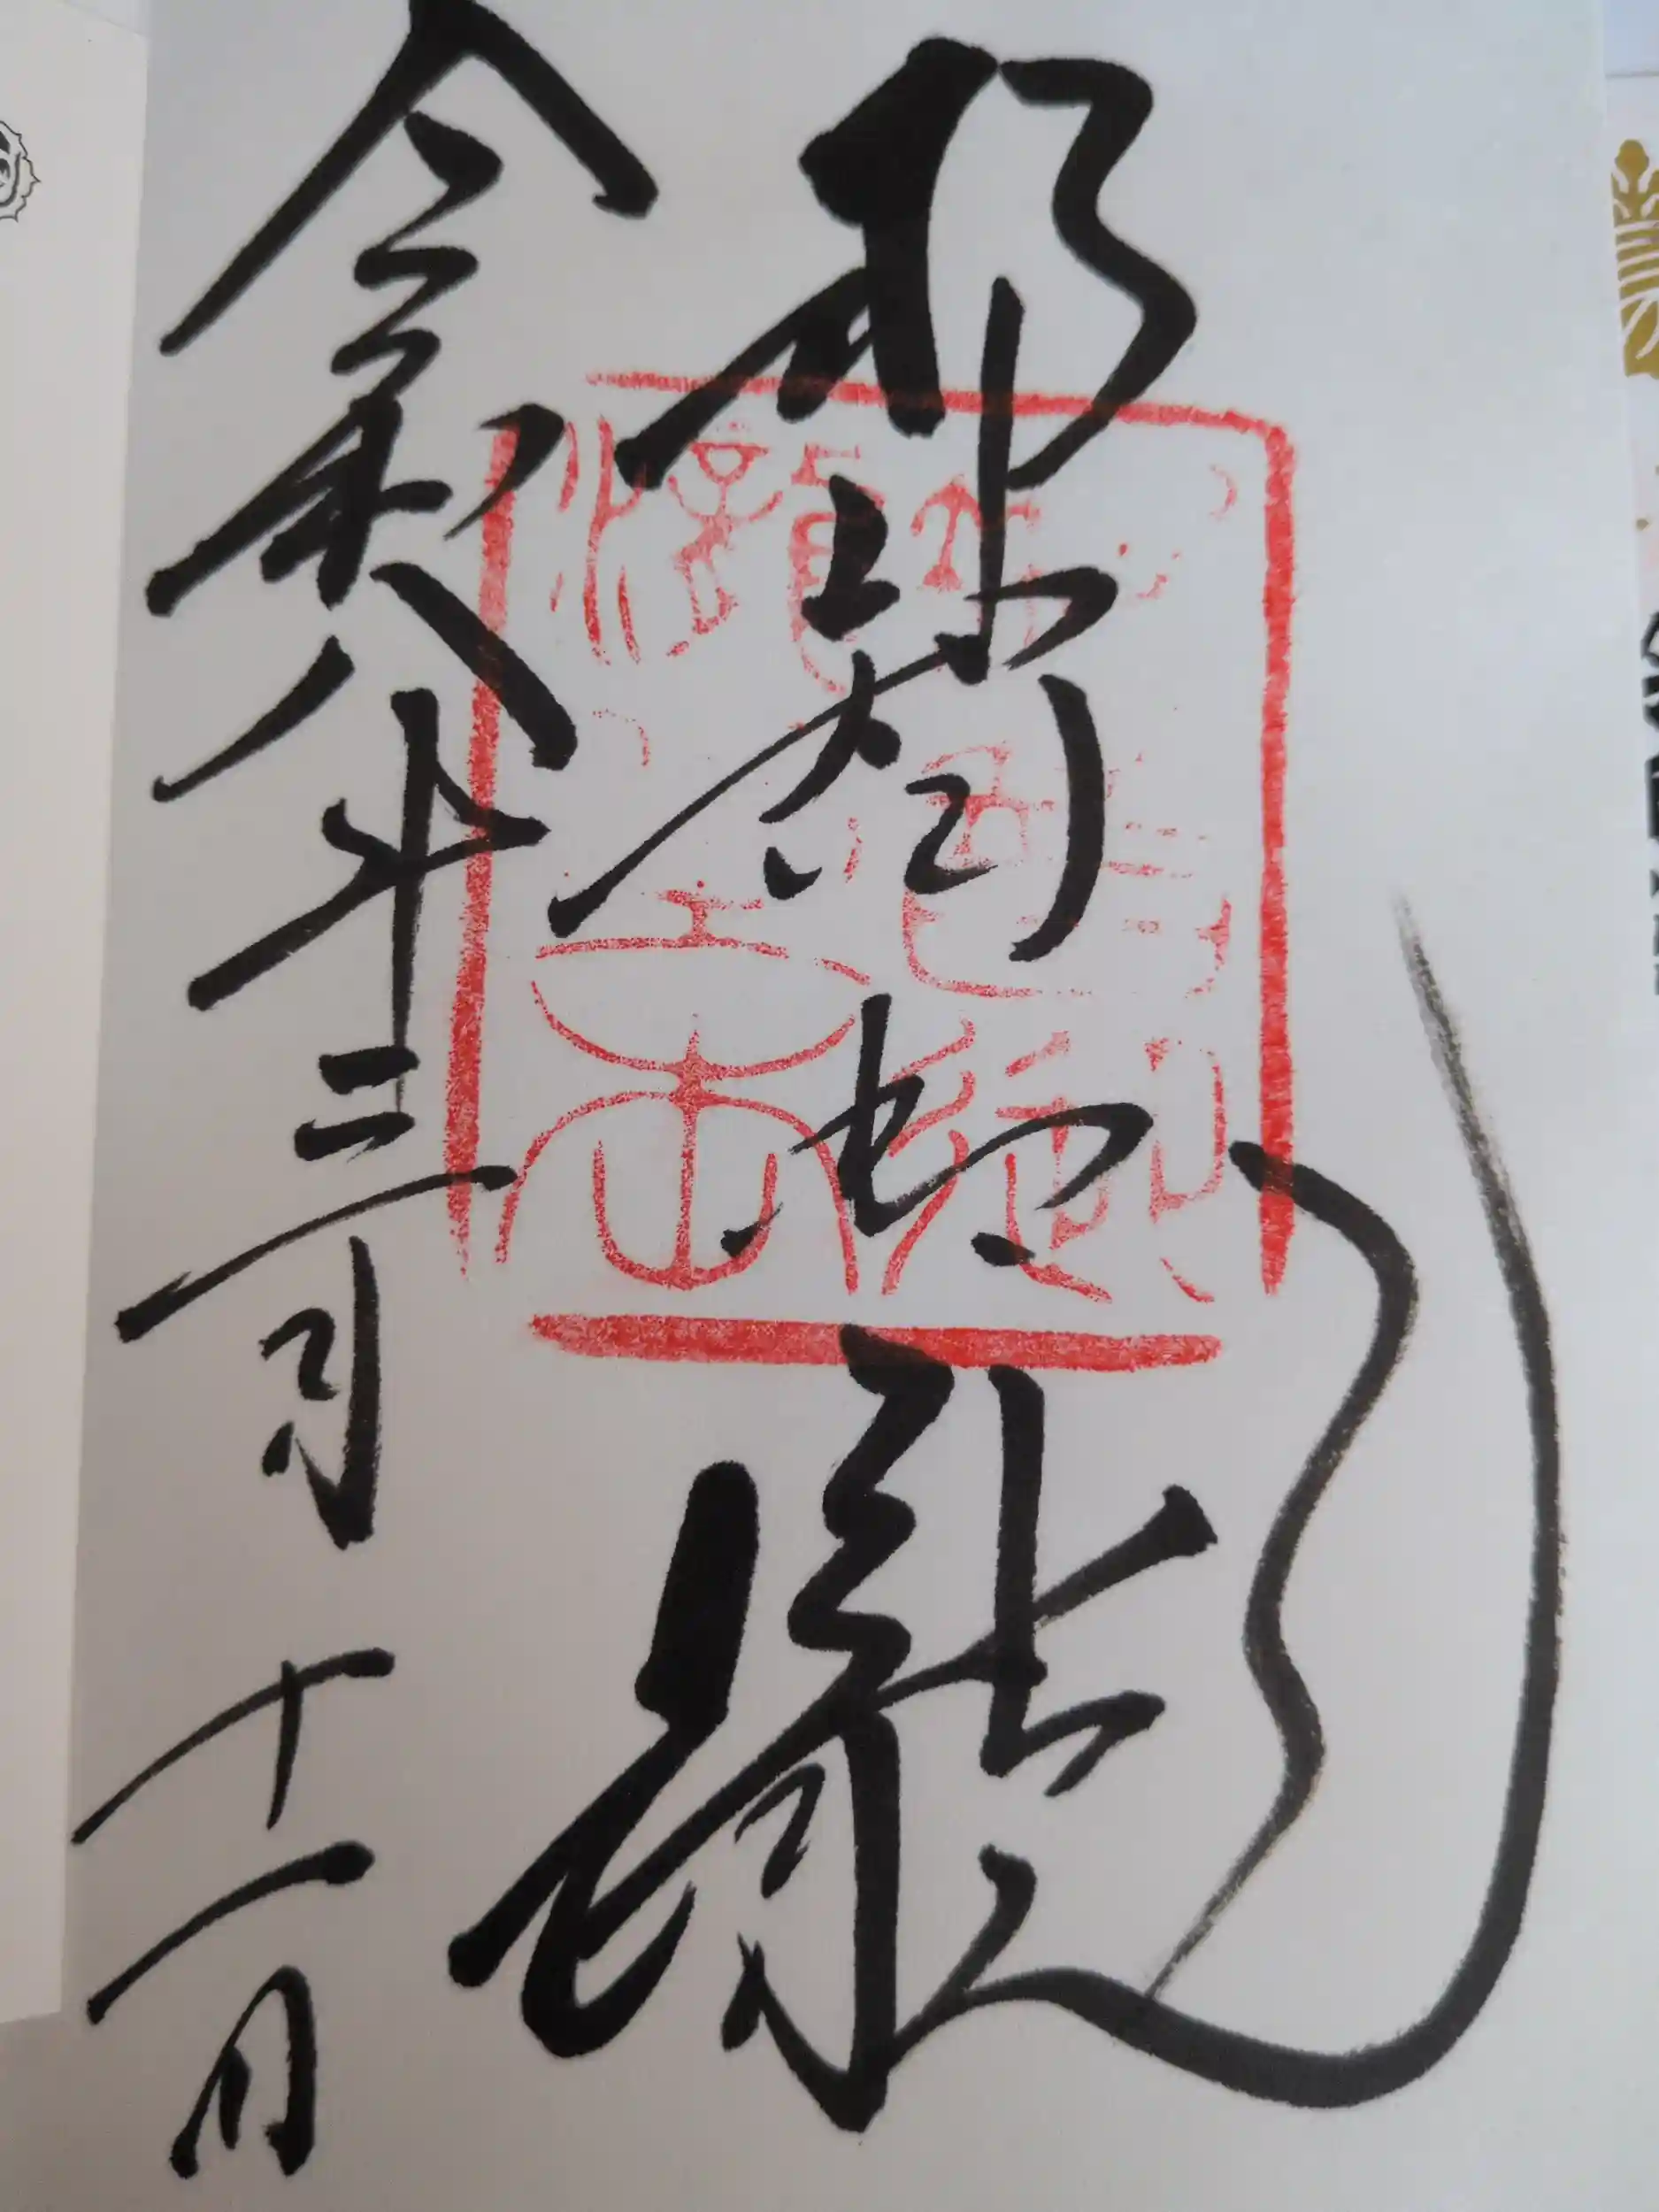 那智御瀧
令和八年三月十一日